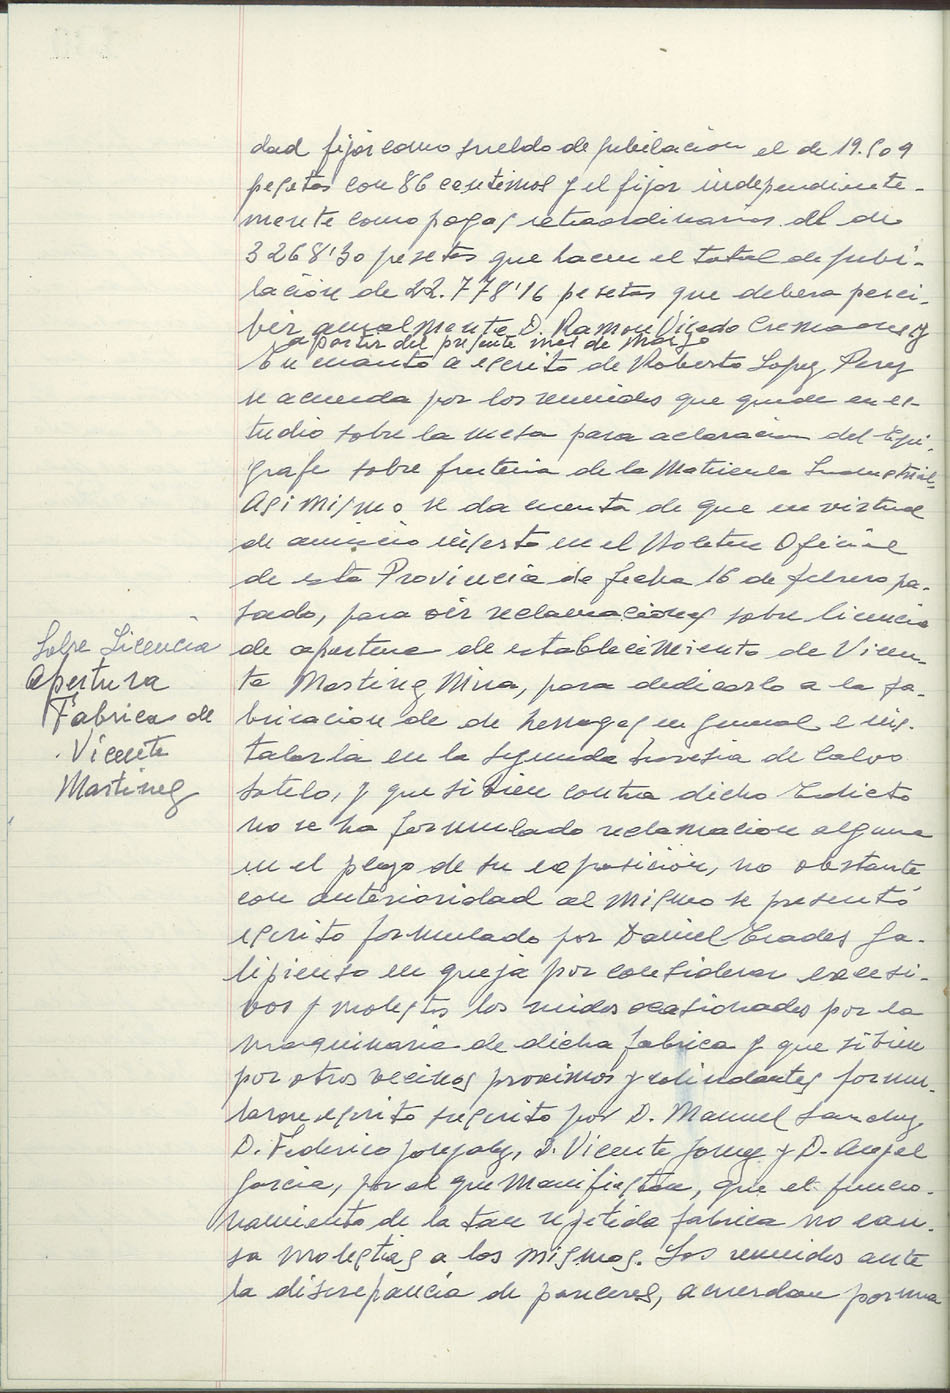 dad fijar como sueldo de jubilacion el de 19.509
pesetas con 86 centimos y el fijar independiente-
mente como pagas extraordinarias el de
3268'30 pesetas que hacen el total de jubi-
lación de 22.778'16 pesetas que debera perci-
bir anualmente D. Ramon Vicedo Cremades y
a partir del presente mes de Marzo
En cuanto a escrito de Roberto Lopez Perez
se acuerda por los reunidos que quede en es-
tudio sobre la mesa para aclaracion del Epi-
grafe sobre fruteria de la Matricula Industrial.
Asi mismo se da cuenta de que en virtud
de anuncio inserto en el Boletin Oficial
de esta Provincia de fecha 16 de febrero pa-
sado, para oir reclamaciones sobre licencia
Sobre Licencia
Apertura
Fabrica de
Vicente
Martinez
de apertura de establecimiento de Vicen-
te Martinez Mira, para dedicarlo a la fa-
bricacion de de herrages en general e ins-
talarla en la segunda travesia de Calvo
Sotelo, y que si bien contra dicho Edicto
no se ha formulado reclamacion alguna
en el plazo de su exposición, no obstante
con anterioridad al mismo se presentó
escrito formulado por Daniel Erades Ga-
lipienso en queja por considerar excesi-
vos y molestos los ruidos ocasionados por la
maquinaria de dicha fabrica y que si bien
por otros vecinos proximos y colindantes formu-
laron escrito suscrito por D. Manuel Sanchez,
D. Federico Gonzalez, D. Vicente Gomez y D. Angel
Garcia, por el que manifiestan, que el funcio-
namiento de la tan repetida fabrica no cau-
sa molestias a los mismos. Los reunidos ante
la discrepancia de pareceres, acuerdan por una